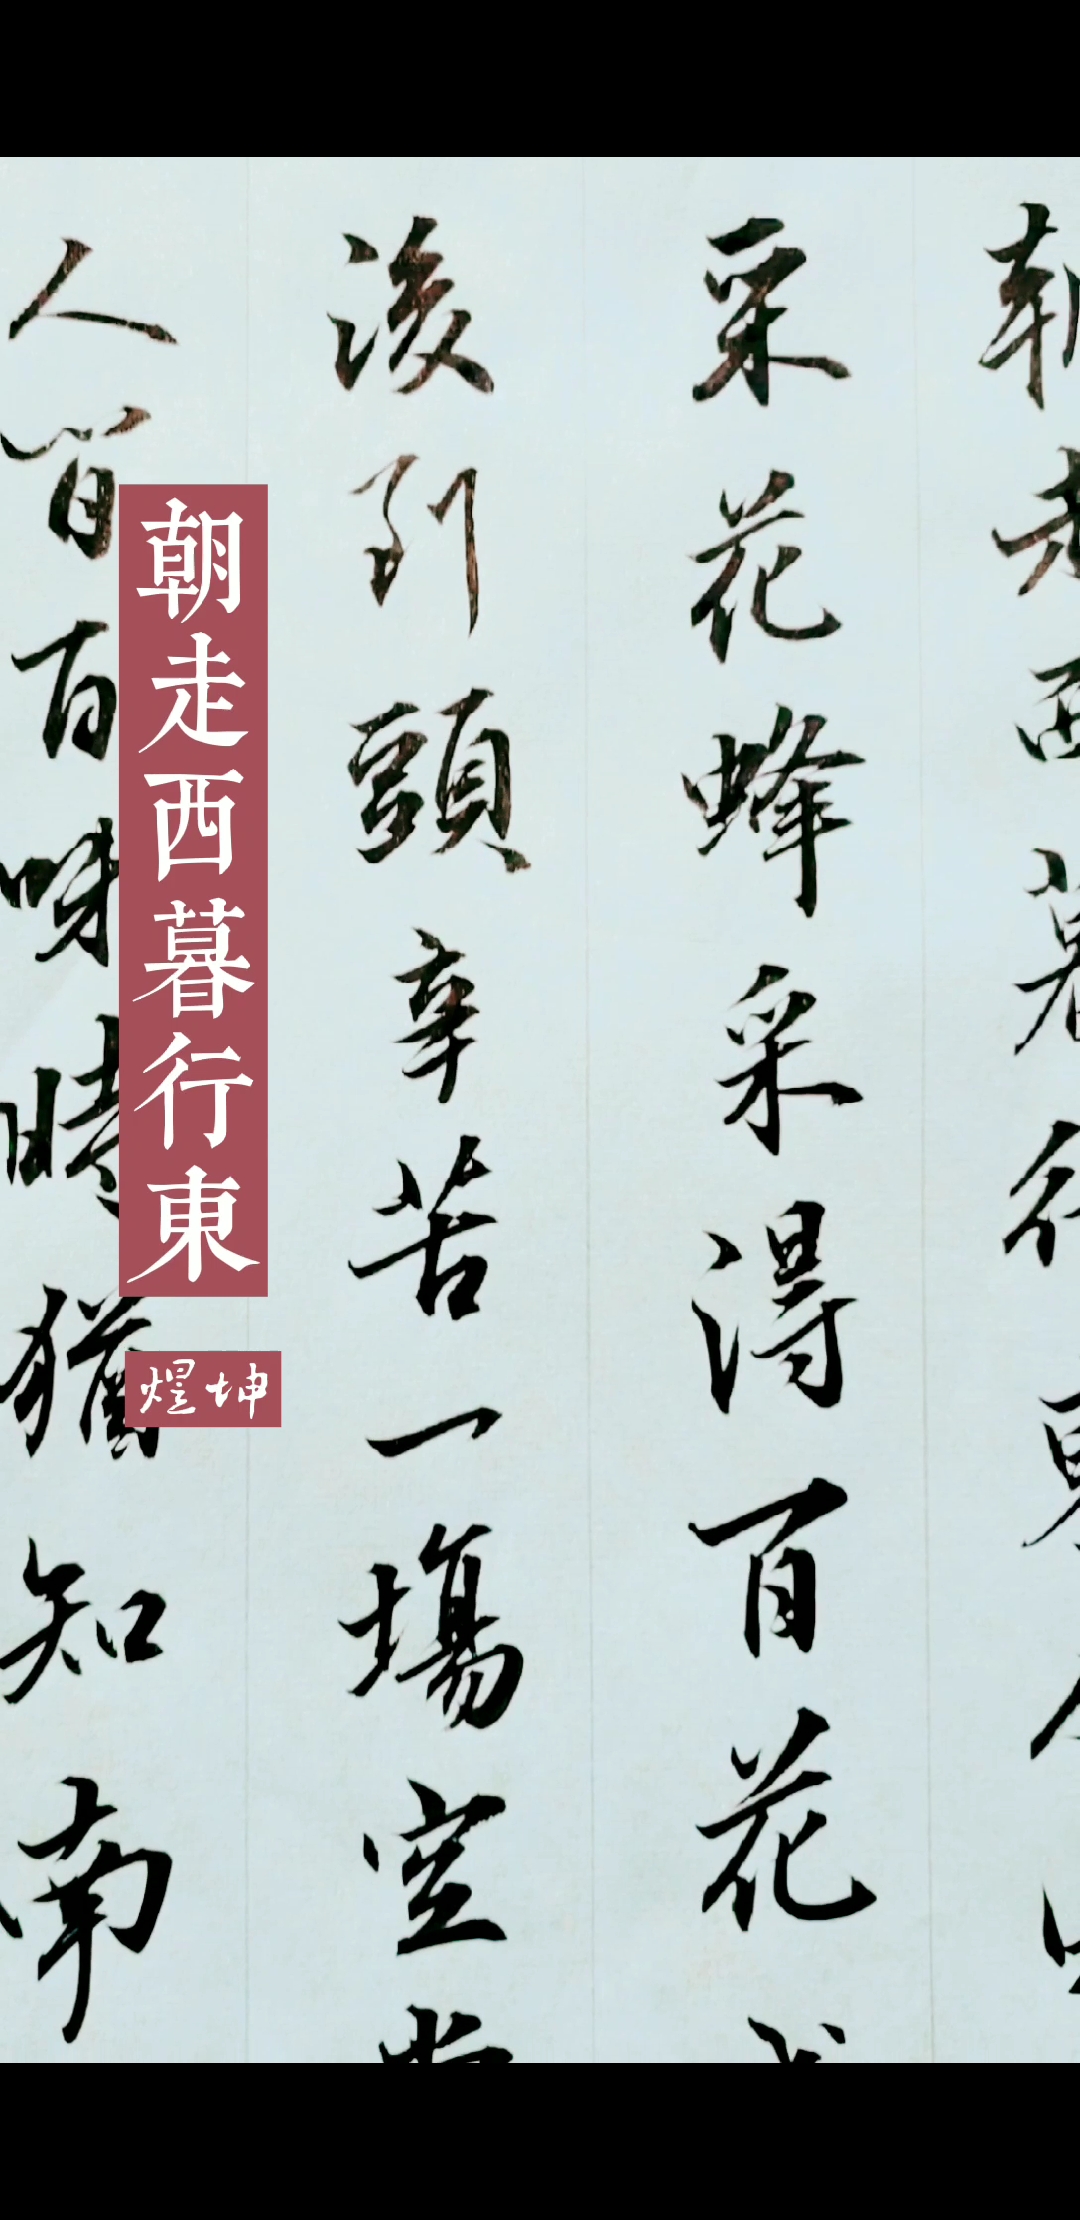 朝走西暮行東
采花蜂采得百花
後到頭辛苦一場空
人間百味猶知南
朝走西暮行東
煜坤